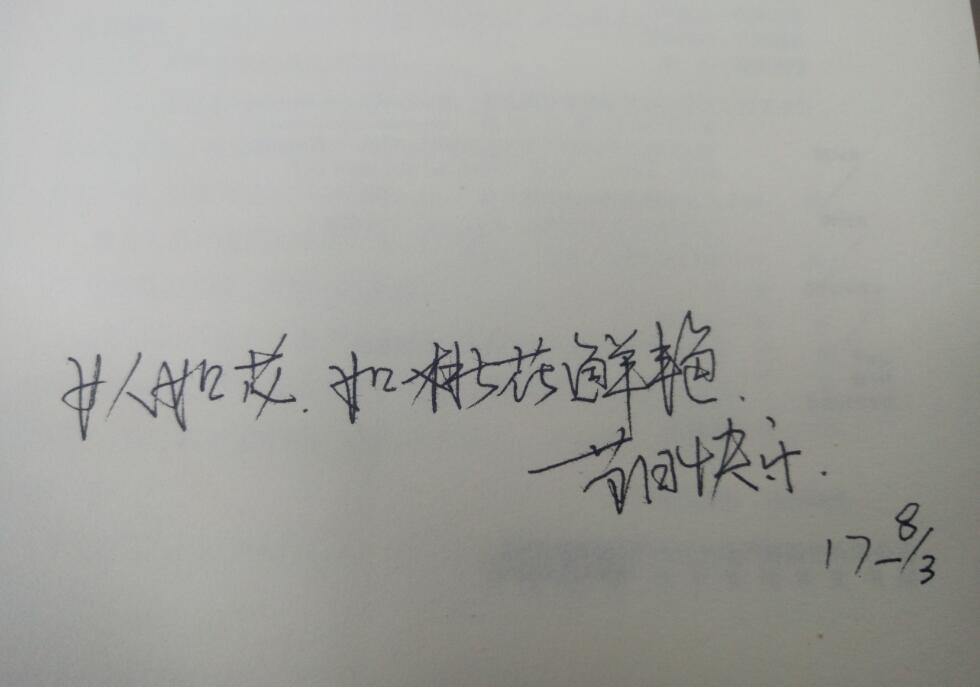 女人如花.如桃花鲜艳.
一节日快乐.
17-8/3